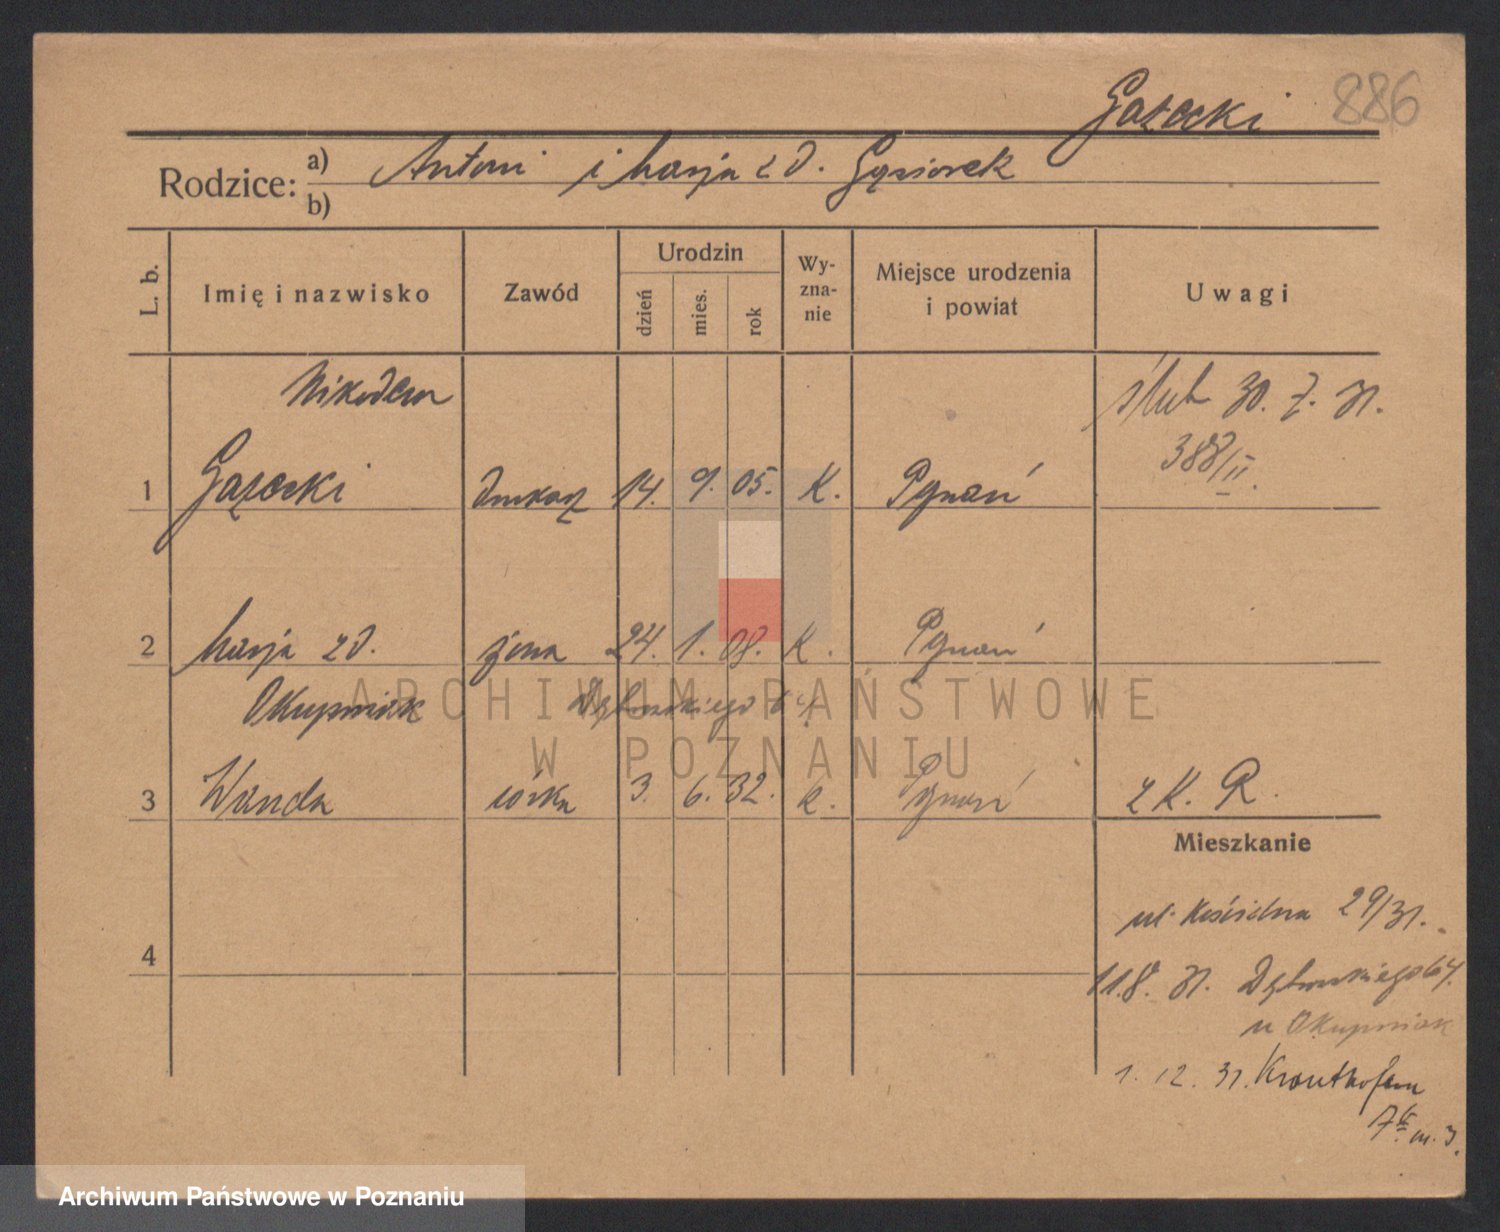 Gałecki 886
Rodzice: a) Antoni i Marja z d. Gąsiorek
b)
L. b. Imię i nazwisko Zawód Urodzin dzień mies. rok Wy-zna-nie Miejsce urodzenia i powiat Uwagi
Nikodem ślub 30. 7. 31.
388/II.
1 Gałecki drukarz 14. 9. 05. K. Poznań
2 Marja z d. żona 24. 1. 08. K. Poznań
Okupniak Dąbrowskiego 64
ARCHIWUM PAŃSTWOWE
W POZNANIU
3 Wanda córka 3. 6. 32. k. Poznań z K. R.
Mieszkanie
ul. Kościelna 29/31.
4
11.8. 31. Dąbrowskiego 64.
u Okupniak
1. 12. 31. Krauthofera
7 m. 3.
Archiwum Państwowe w Poznaniu